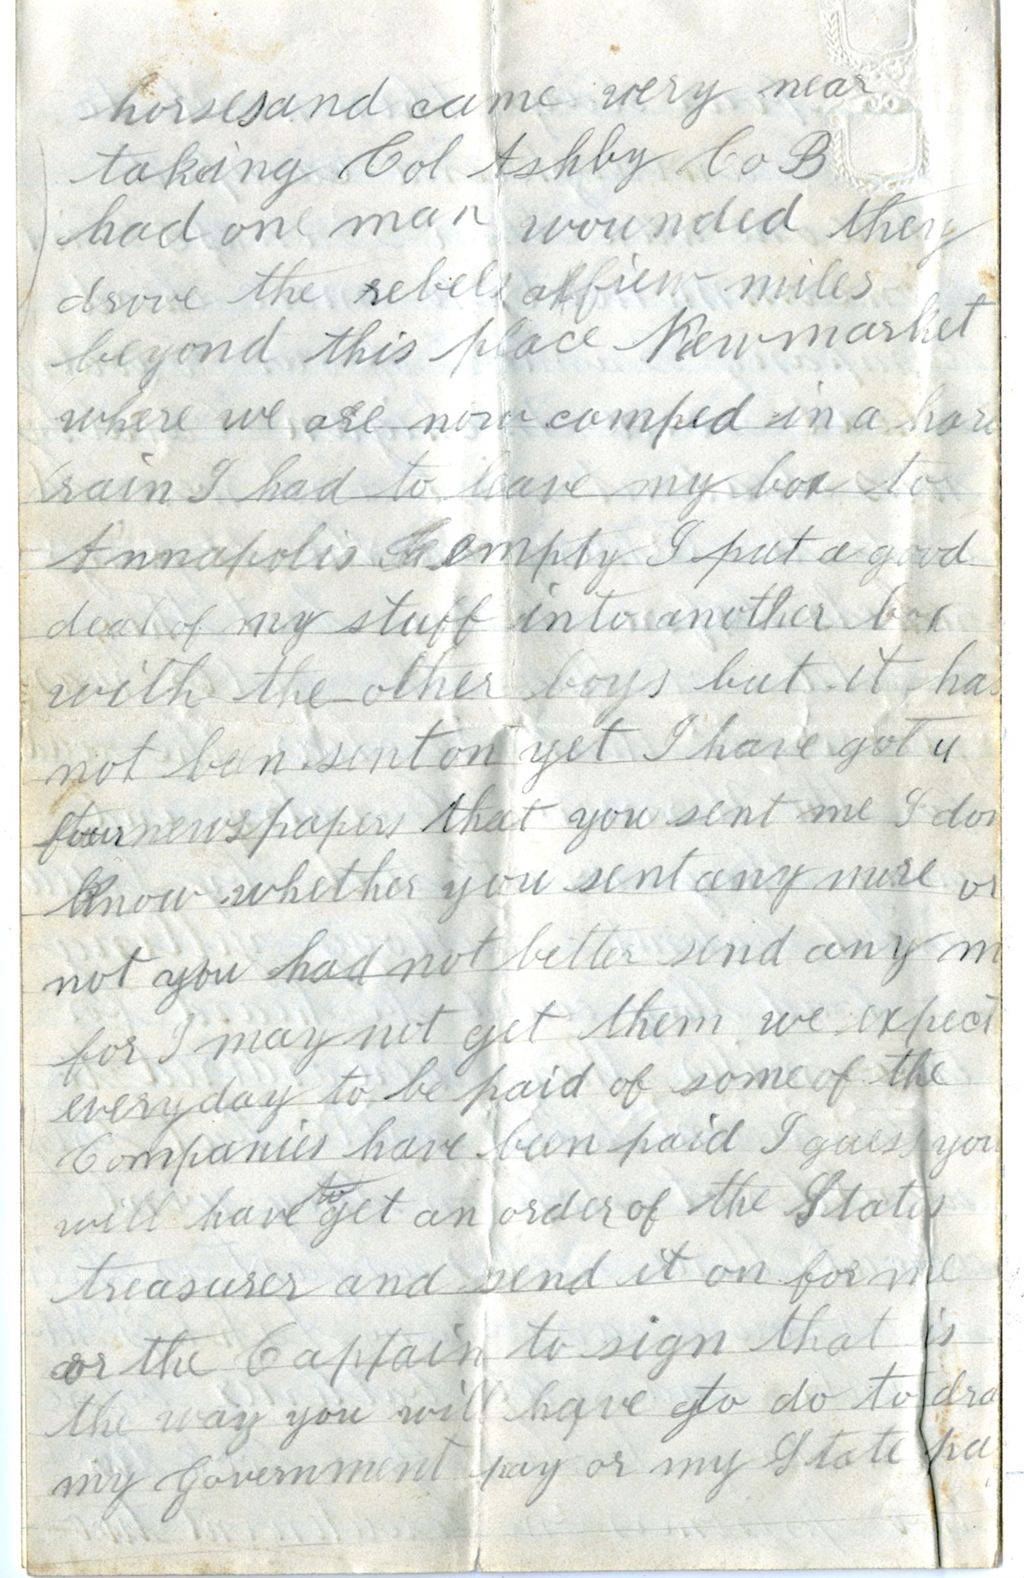 horses and came very near
taking Col Ashby Co B
had one man wounded they
drove the rebels a few miles
beyond this place Newmarket
where we are now camped in a hard
rain I had to leave my box to
Annapolis empty I put a good
deal of my stuff into another box
with the other boys but it has
not been sent on yet I have got 4
four newspapers that you sent me I don
know whether you sent any more or
not you had not better send any m
for I may not get them we expect
every day to be paid of some of the
Companies have been paid I guess you
will have to get an order of the States
treasurer and send it on for me
or the Captain to sign that is
the way you will have to do to dra
my Government pay or my State pa